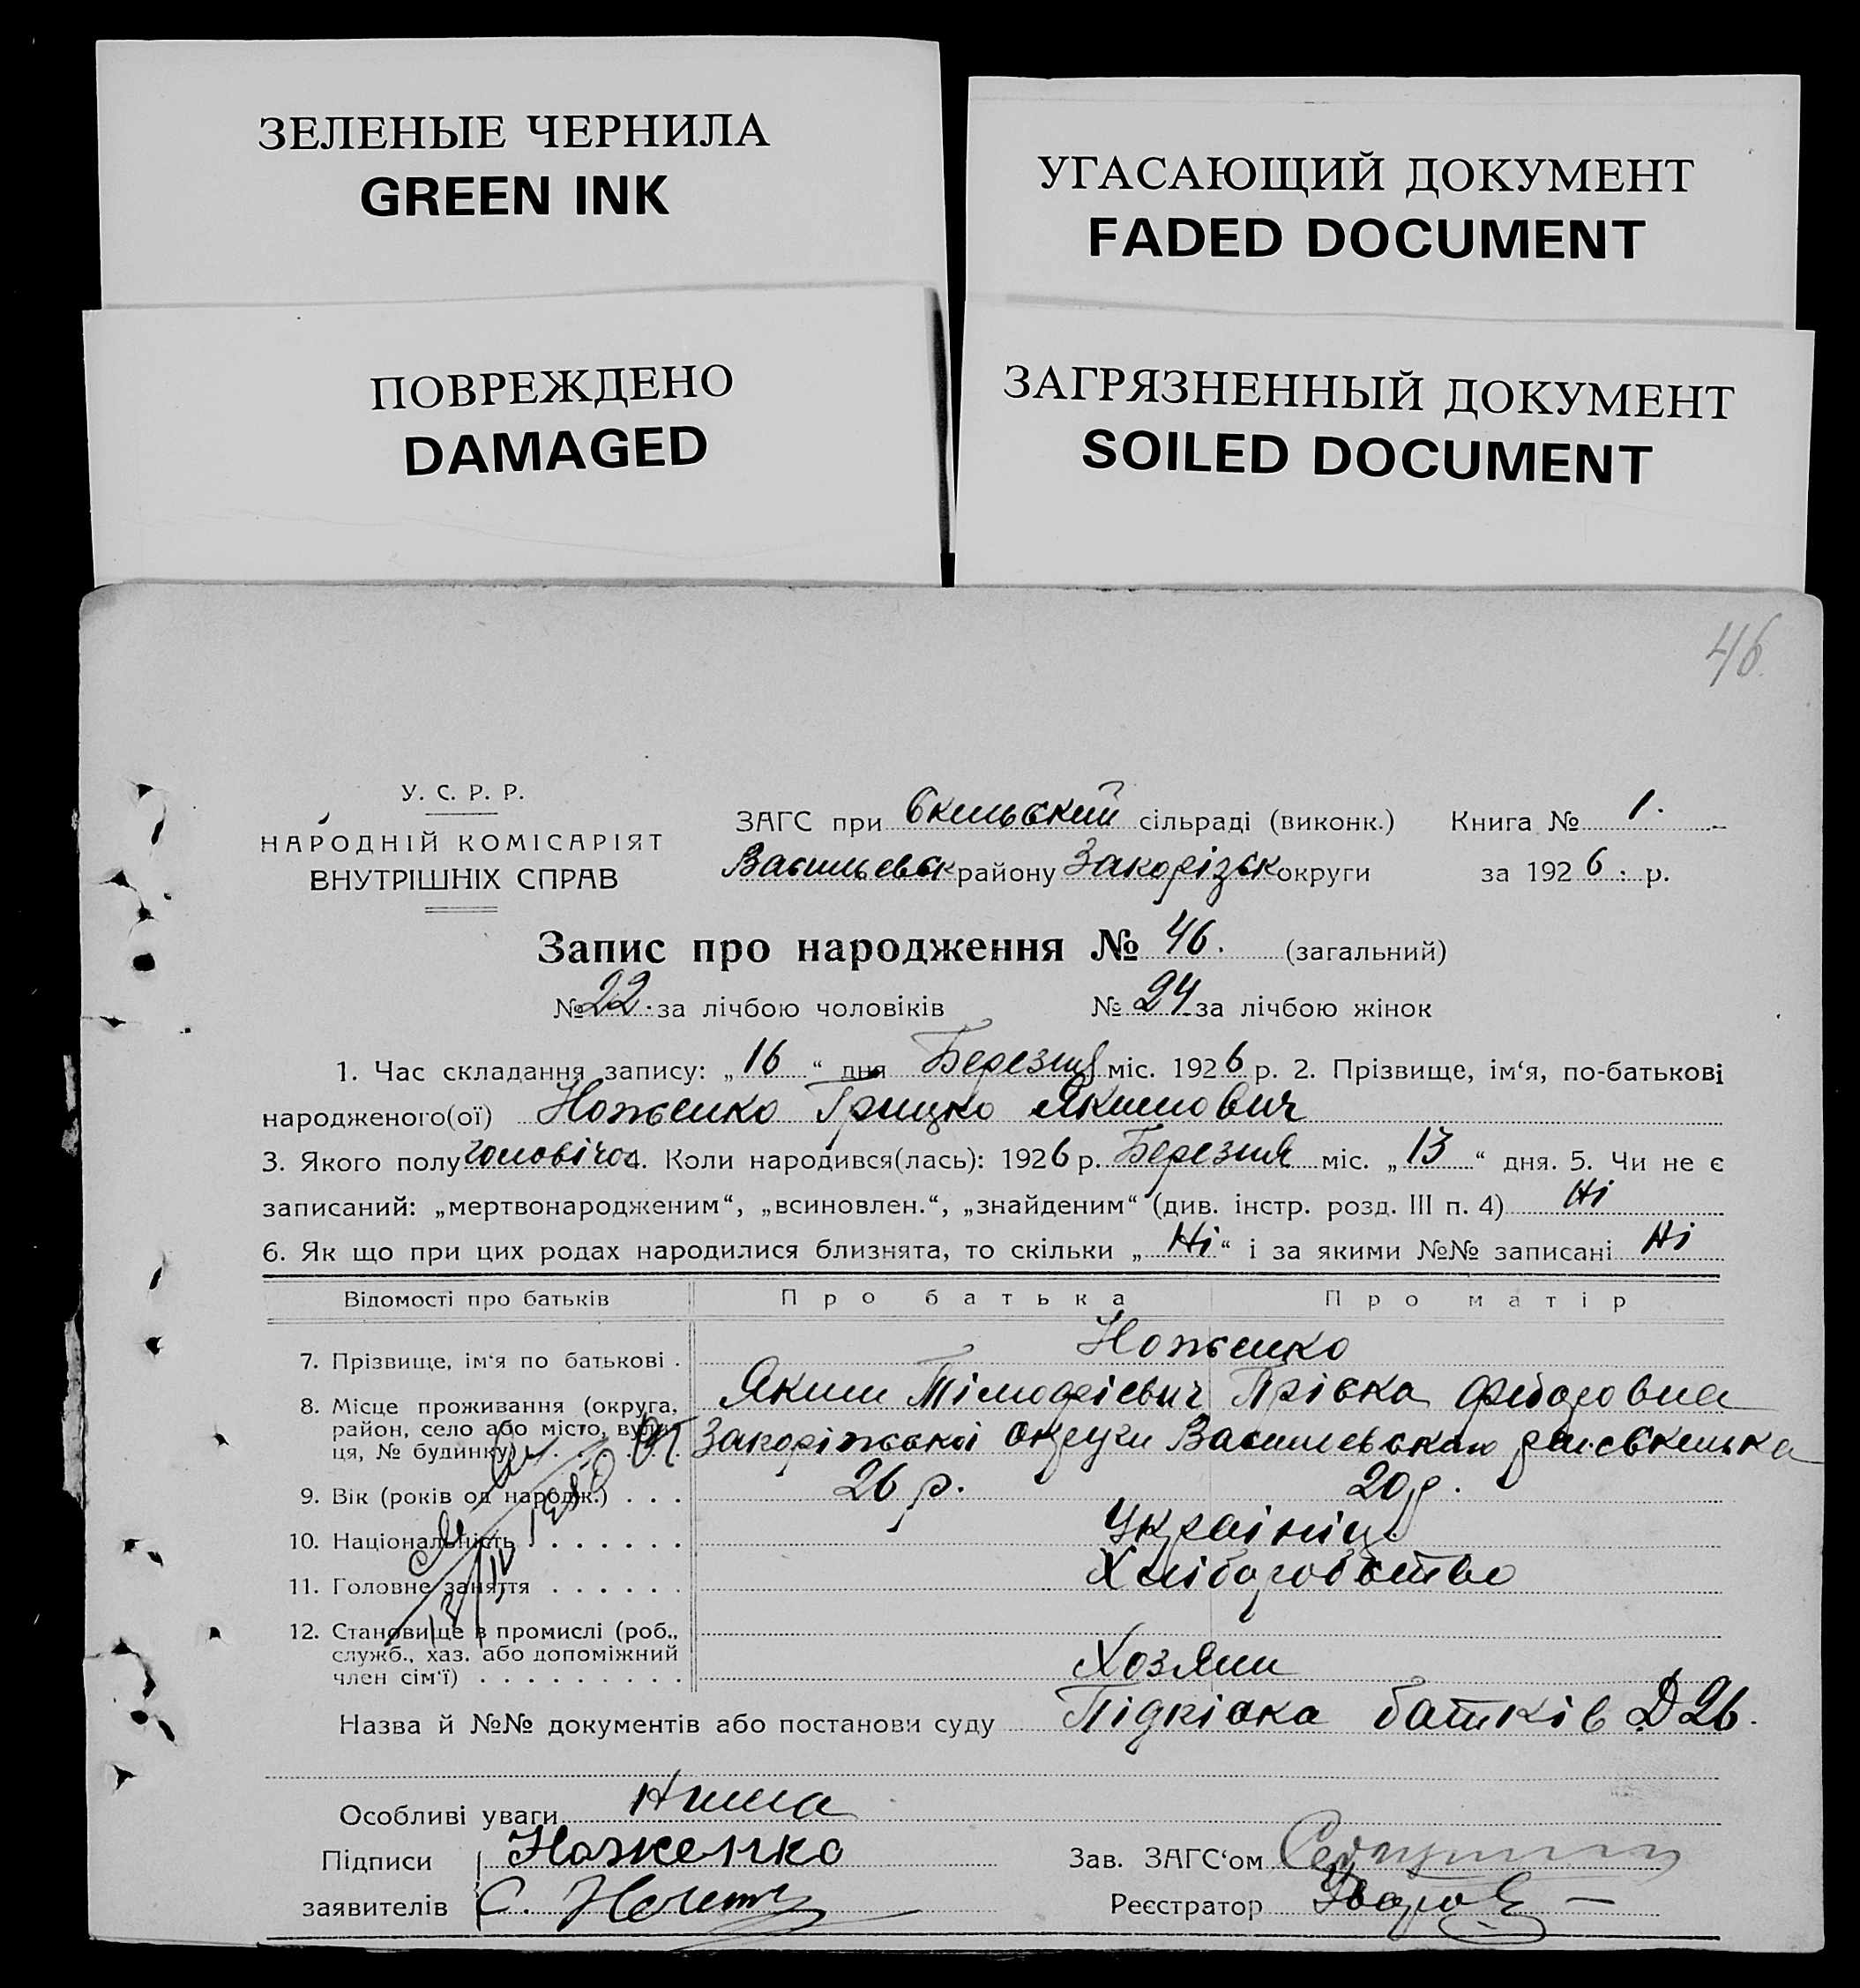 ЗЕЛЕНЫЕ ЧЕРНИЛА
GREEN INK
УГАСАЮЩИЙ ДОКУМЕНТ
FADED DOCUMENT
ПОВРЕЖДЕНО
DAMAGED
ЗАГРЯЗНЕННЫЙ ДОКУМЕНТ
SOILED DOCUMENT
46
У. С. Р. Р.
НАРОДНІЙ КОМІСАРІЯТ
ВНУТРІШНІХ СПРАВ
ЗАГС при Скельский сільраді (виконк.) Книга № 1.
Васильевськ району округи за 1926. р.
Запис про народження № 46. (загальний)
№ 22. за лічбою чоловіків № 24 за лічбою жінок
1. Час складання запису: „16“ дня Березня міс. 1926 р. 2. Прізвище, ім‘я, по-батькові
народженого(ої) Ноженко Грицко Якимович
3. Якого полу 4. Коли народився(лась): 1926 р. Березня міс. „13“ дня. 5. Чи не є
записаний: „мертвонародженим“, „всиновлен.“, „знайденим“ (див. інстр. розд. III п. 4) Ні
6. Як що при цих родах народилися близнята, то скільки „Ні“ і за якими №№ записані Ні
Відомості про батьків Про батька Про матір
7. Прізвище, ім‘я по батькові . Ноженко
8. Місце проживання (округа, Яким Тімофієвич Пріска Федоровна
район, село або місто, вули-
ця, № будинку) округи
9. Вік (років од народж.) . . . 26 р. 20 р.
10. Національність . . . . . . . Українці
11. Головне заняття . . . . . . Хліборобство
12. Становище в промислі (роб.,
служб., хаз. або допоміжний
член сім‘ї) . . . . . . . . . Хозяин
Назва й №№ документів або постанови суду Підпіска батків Д 26.
Особливі уваги Нима
Підписи Ноженко Зав. ЗАГС‘ом
заявителів С. Реєстратор